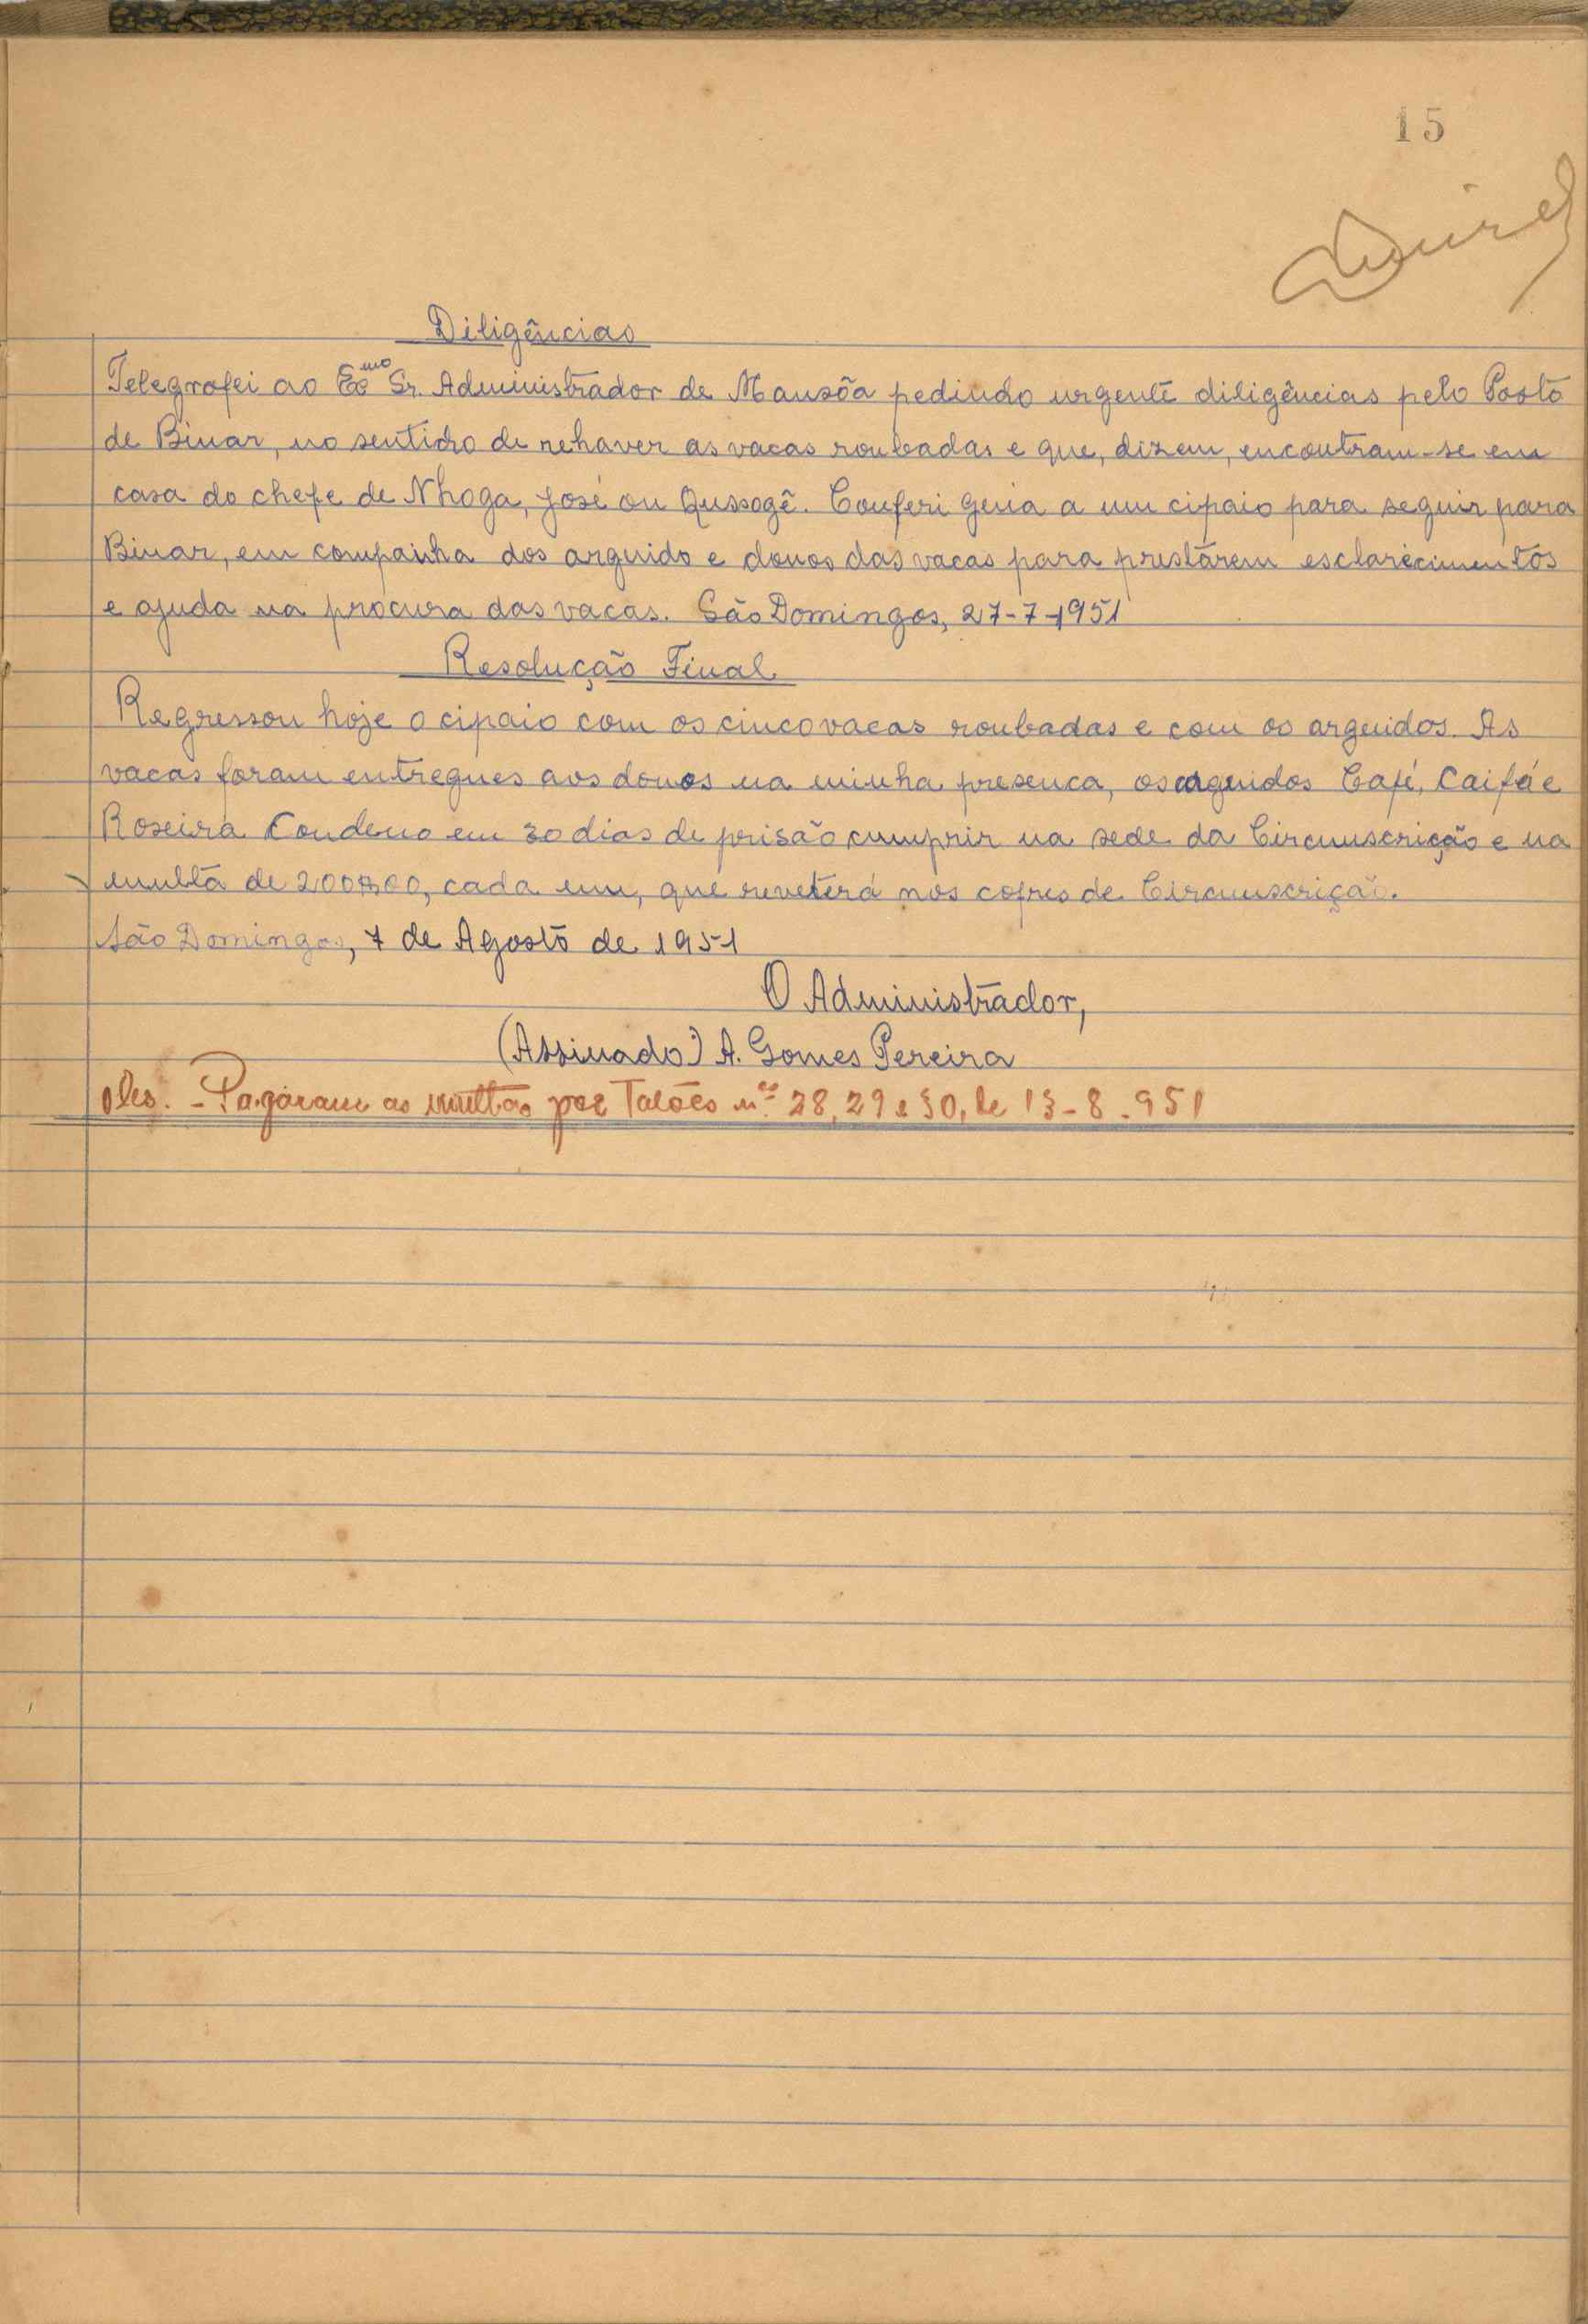 15
Diligências
Telegrafei ao Eº mo Sr. Administrador de Mansôa pedindo urgente diligências pelo Posto
de Binar, no sentido de rehaver as vacas roubadas e que, dizem, encontram-se em
casa do chefe de Nhoga, José ou Qussogê. Conferi geria a um cipaio para seguir para
Binar, em compainha dos arguido e donos das vacas para prestárem esclarecimentos
e ajuda na procura das vacas. São Domingos, 27-7-1951
Resolução Final
Regressou hoje o cipaio com os cinco vacas roubadas e com os arguidos. As
vacas foram entregues aos donos na minha presenca, os arguidos Café, Caifá e
Roseira Condeno em 30 dias de prisão cumprir na sede da Circunscrição e na
multa de 200$00, cada um, que reveterá nos cofres de Circunscrição.
São Domingos, 7 de Agosto de 1951
O Administrador,
(Assinado) A. Gomes Pereira
Obs. - Pagáram as multas por Talões nºs 28, 29 e 30, de 13-8-951